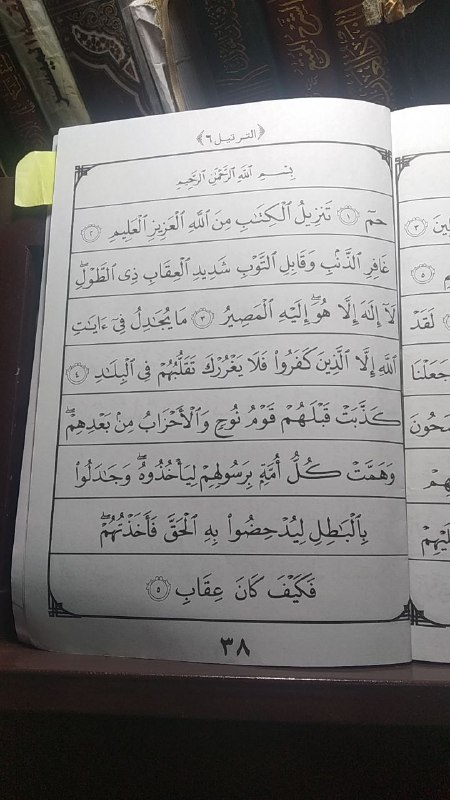 ﴿الترتيل ٦﴾
بِسْمِ اللَّهِ الرَّحْمَٰنِ الرَّحِيمِ
حمٓ ١ تَنزِيلُ الْكِتَٰبِ مِنَ اللَّهِ الْعَزِيزِ الْعَلِيمِ ٢
غَافِرِ الذَّنۢبِ وَقَابِلِ التَّوْبِ شَدِيدِ الْعِقَابِ ذِى الطَّوْلِۖ
لَآ إِلَٰهَ إِلَّا هُوَۖ إِلَيْهِ الْمَصِيرُ ٣ مَا يُجَٰدِلُ فِىٓ ءَايَٰتِ
اللَّهِ إِلَّا الَّذِينَ كَفَرُوا۟ فَلَا يَغْرُرْكَ تَقَلُّبُهُمْ فِى الْبِلَٰدِ ٤
كَذَّبَتْ قَبْلَهُمْ قَوْمُ نُوحٍ وَالْأَحْزَابُ مِنۢ بَعْدِهِمْۖ
وَهَمَّتْ كُلُّ أُمَّةٍۭ بِرَسُولِهِمْ لِيَأْخُذُوهُۖ وَجَٰدَلُوا۟
بِالْبَٰطِلِ لِيُدْحِضُوا۟ بِهِ الْحَقَّ فَأَخَذْتُهُمْۖ
فَكَيْفَ كَانَ عِقَابِ ٥
٣٨